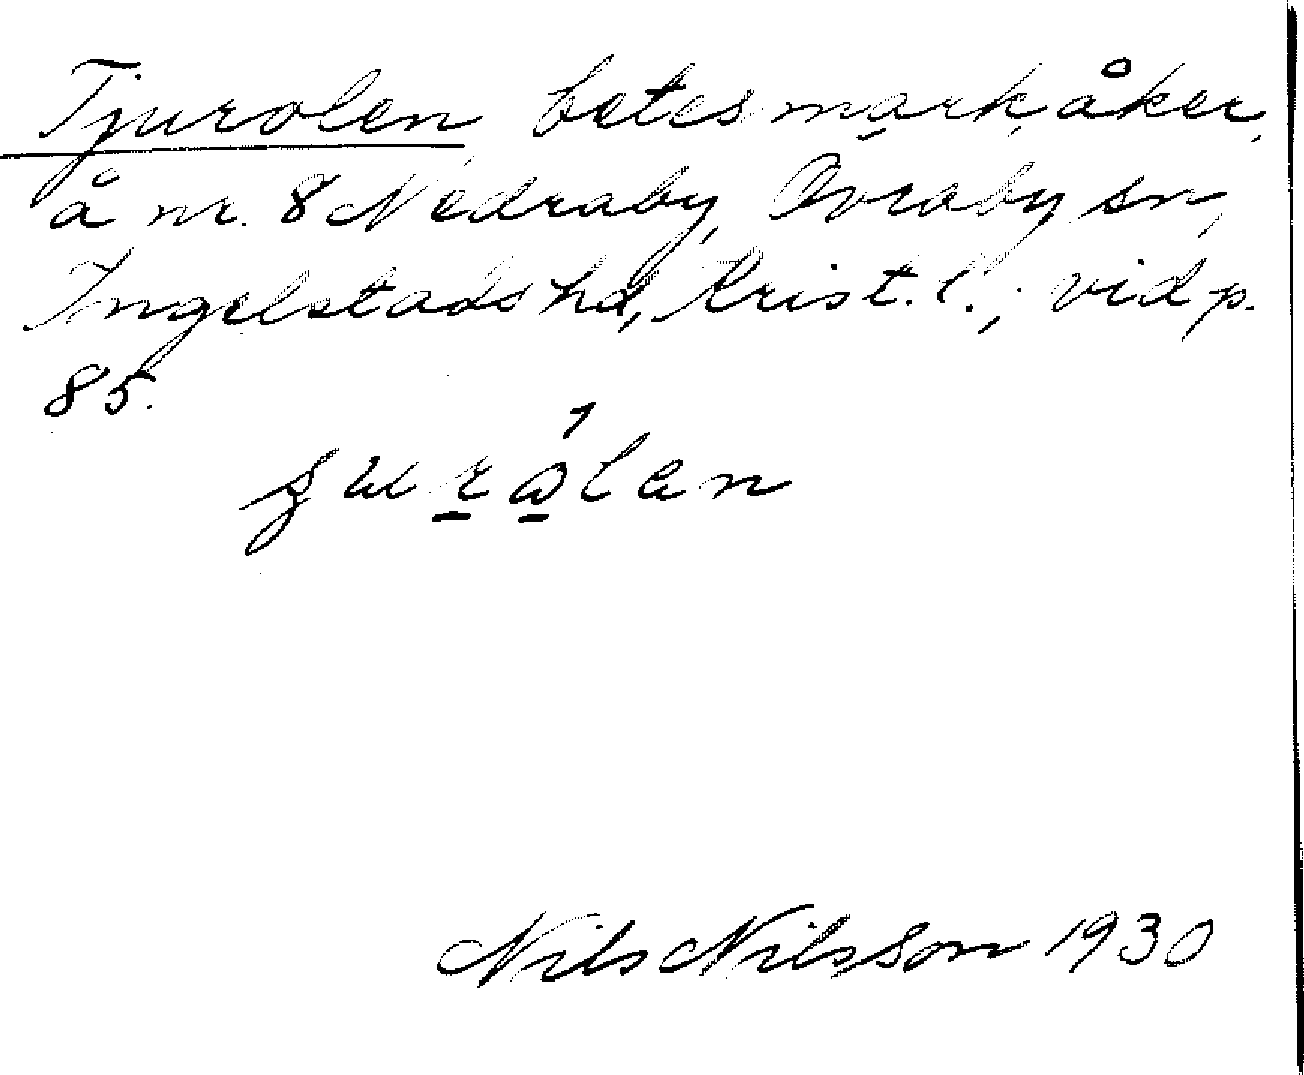 Tjurolen, betesmark, åker,
å nr. 8 Nedraby, Övraby sn,
Ingelstads hd, Krist. l.; vid p.
85.
Nils Nilsson 1930